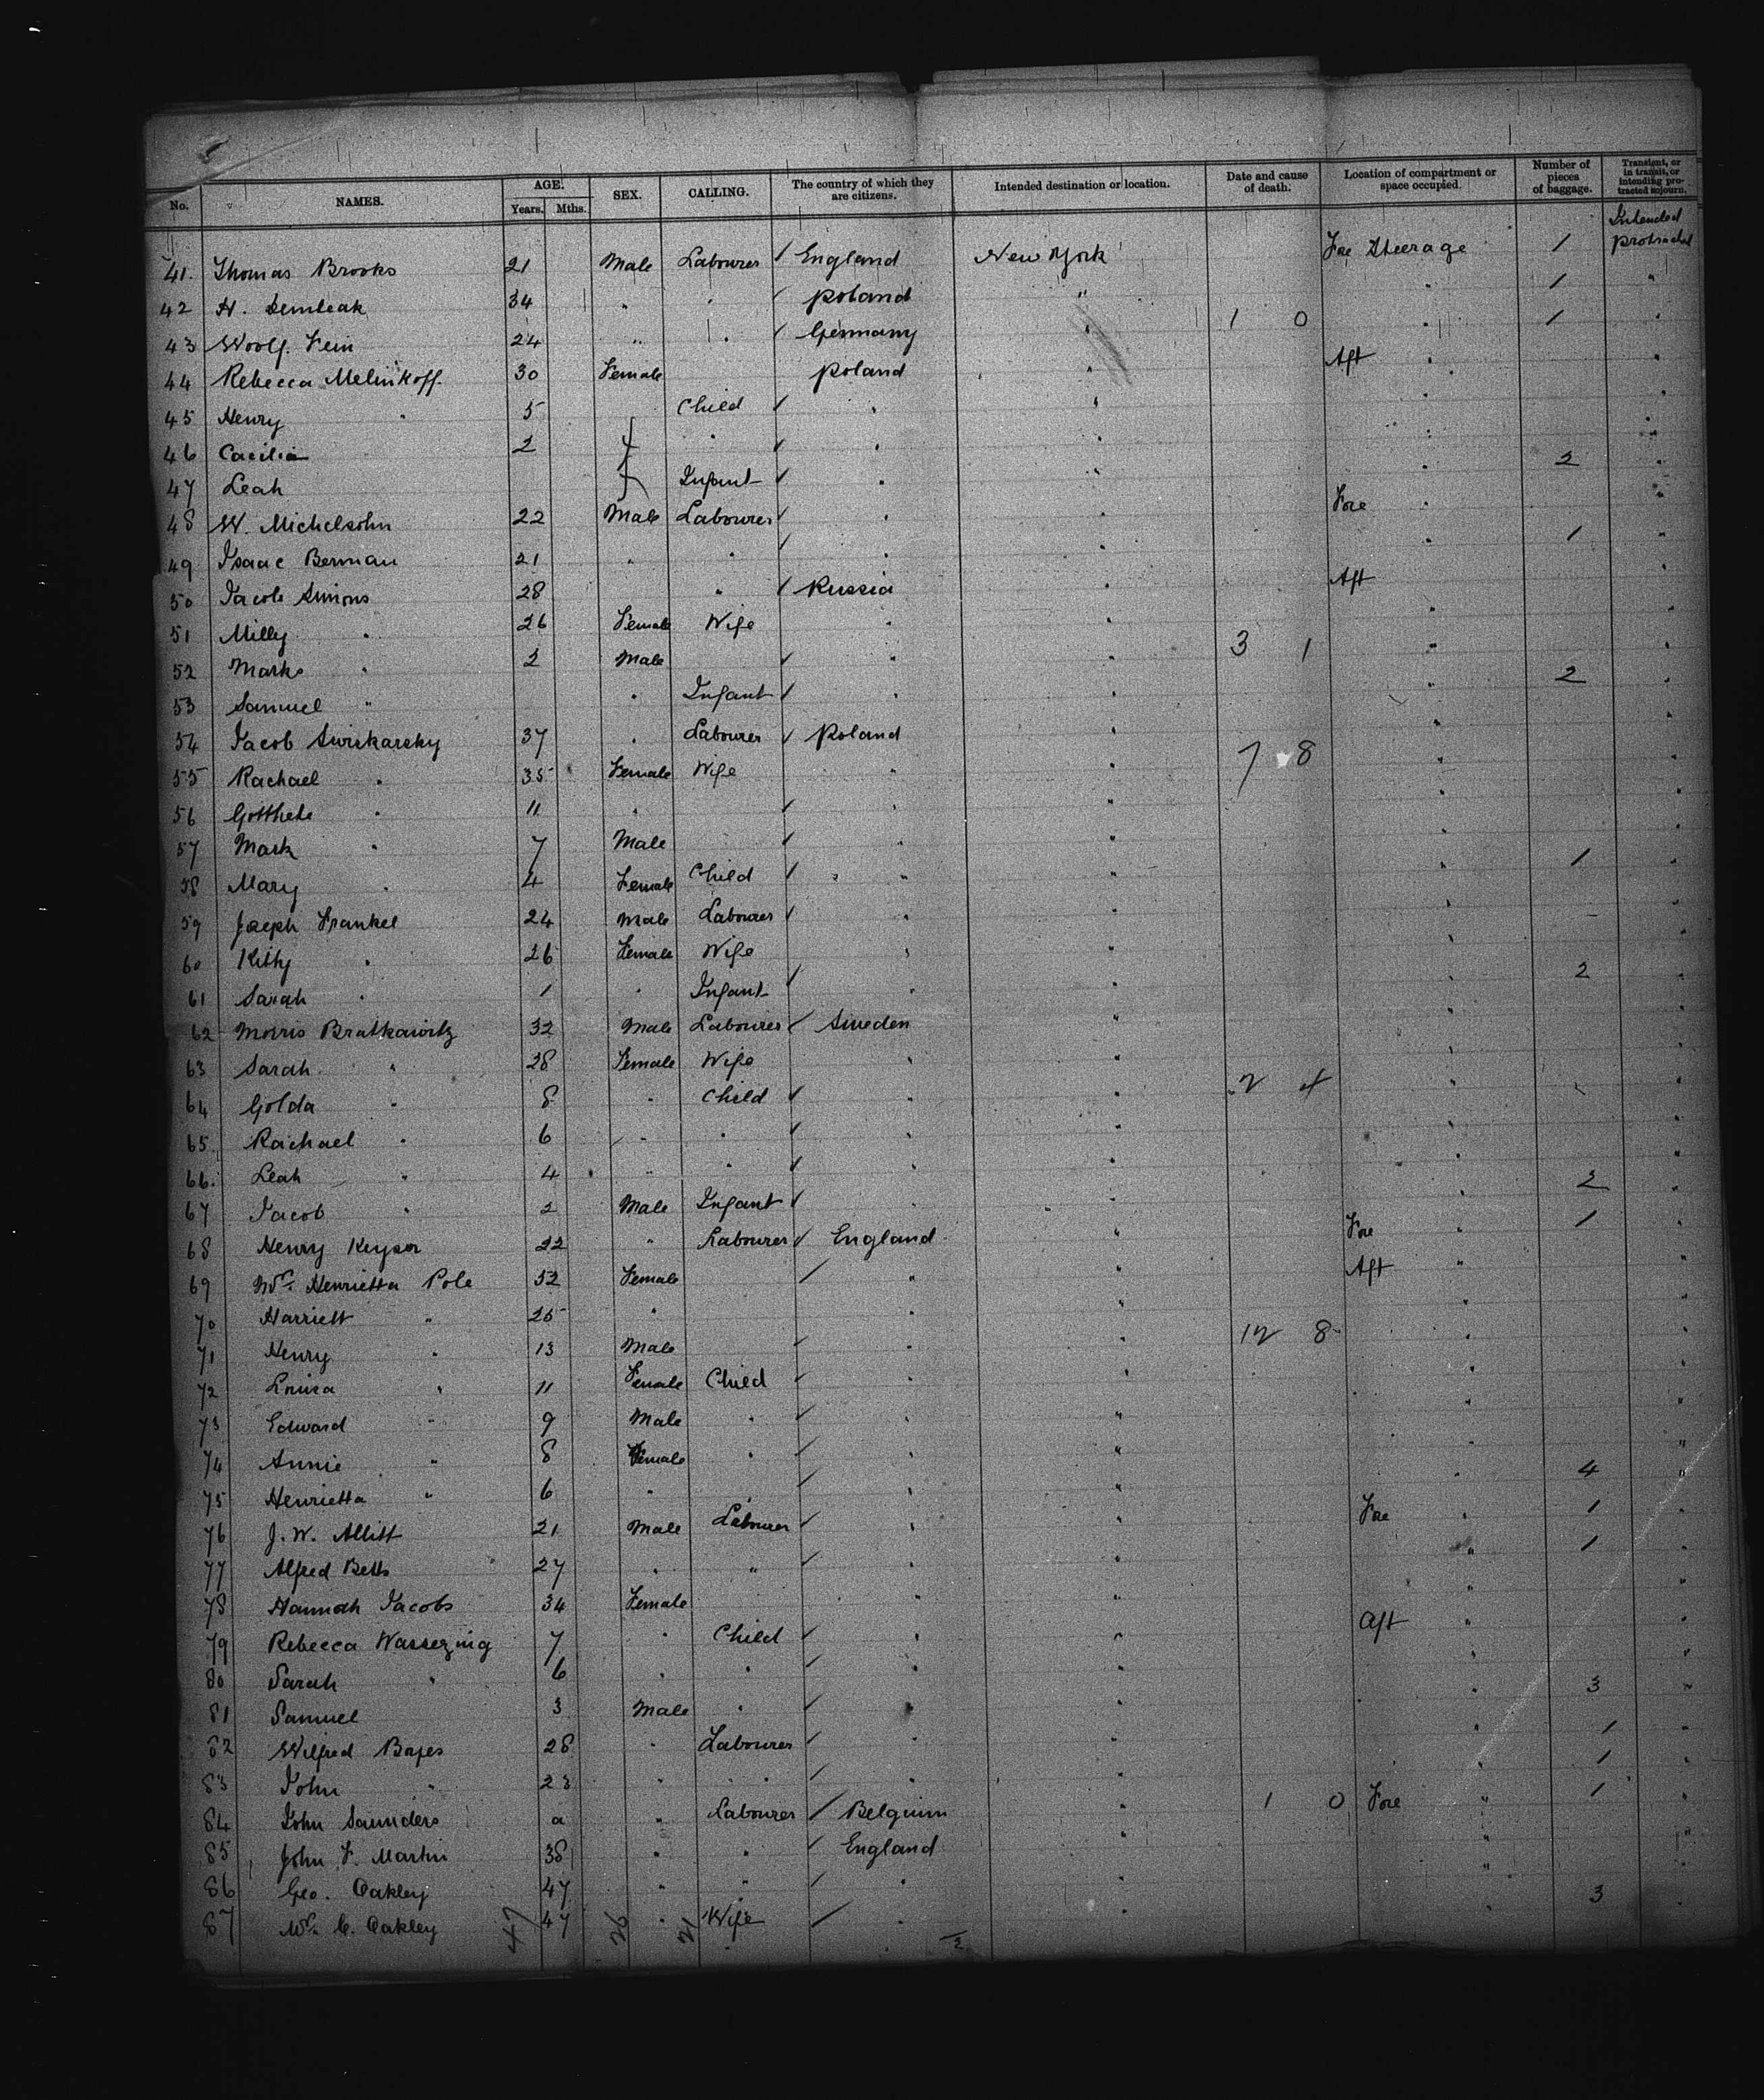 No. NAMES. AGE. Years. Mths. SEX. CALLING. The country of which they are citizens. Intended destination or location. Date and cause of death. Location of compartment or space occupied. Number of pieces of baggage. Transient, or in transit, or intending protracted sojourn.
41. Thomas Brooks 21 Male Labourer / England New York Fore Steerage 1 Intended protracted
42 H. 34 " " / Poland " " 1 "
43 Woolf Fein 24 " " / Germany " 1 0 " 1 "
44 Rebecca Melinkoff 30 Female Poland " Aft " "
45 Henry " 5 Child / " " " "
46 Caecilia 2 " / " " " "
47 Leah Infant / " " " 2 "
48 W. Michelsohn 22 Male Labourer / " " Fore " "
49 Isaac Berman 21 " " / " " " 1 "
50 Jacob Simons 28 " / Russia " Aft "
51 Milly " 26 Female Wife " " " "
52 Marks " 2 Male / " " 3 1 " "
53 Samuel " " Infant / " " " 2 "
54 Jacob 37 " Labourer / Poland " " "
55 Rachael " 35 Female Wife " " 7 8 " "
56 " 11 " / " " " "
57 Mark " 7 Male / " " " "
58 Mary " 4 Female Child / " " " 1 "
59 Joseph Frankel 24 Male Labourer / " " " "
60 Kitty " 26 Female Wife " " " "
61 Sarah " 1 " Infant / " " " 2 "
62 Morris Bratkawitz 32 Male Labourer / Sweden " " "
63 Sarah " 28 Female Wife " " " "
64 Golda " 8 " Child / " " 2 4 " "
65. Rachael " 6 " " / " " " "
66. Leah " 4 " " / " " " 2 "
67 Jacob " 2 Male Infant / " " " "
68 Henry Keyser 22 " Labourer / England " Fore " 1 "
69 Mrs Henrietta Pole 52 Female / " " Aft " "
70 Harriett " 25 " " " " "
71 Henry " 13 Male / " " 12 8 " "
72 Louisa " 11 Female Child / " " " "
73 Edward " 9 Male " / " " " "
74 Annie " 8 Female " / " " " "
75 Henrietta " 6 " / " " " 4 "
76 J. W. Allitt 21 Male Labourer / " " Fore " 1 "
77 Alfred Betts 27 " " / " " " 1 "
78 Hannah Jacobs 34 Female " " " "
79 Rebecca 7 " Child / " " Aft " "
80 Sarah " 6 " " / " " " "
81 Samuel 3 Male " / " " " 3 "
82 Wilfred 28 " Labourer / " " 1 "
83 John " 23 " " / " " " 1 "
84 John Saunders a " Labourer / Belgium " 1 0 Fore " 1 "
85 John F. Martin 38 " " / England " " "
86 Geo. Oakley 47 " " / " " " "
87 Mrs C. Oakley 47 " Wife / " " " 3 "
47 26 21 2